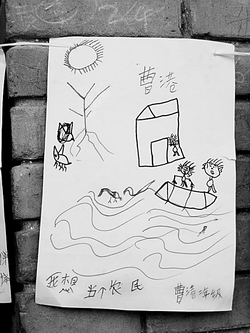 曹港
我想当个农民 曹港